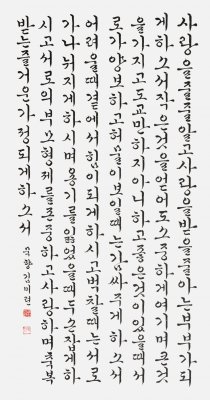 사랑을줄줄알고사랑을받을줄아는부부가되
게하소서작은것을얻어도소중하게여기며큰것
을가지고도교만하지아니하고좋은것이있을때서
로가양보하고허물이보일때는감싸주게하소서
어려울때곁에서힘이되게하시고벅찰때는서로
가나눠지게하시며용기를잃었을때두손잡게하
시고서로의부모형제를존중하고사랑하며축복
받는즐거운가정되게하소서